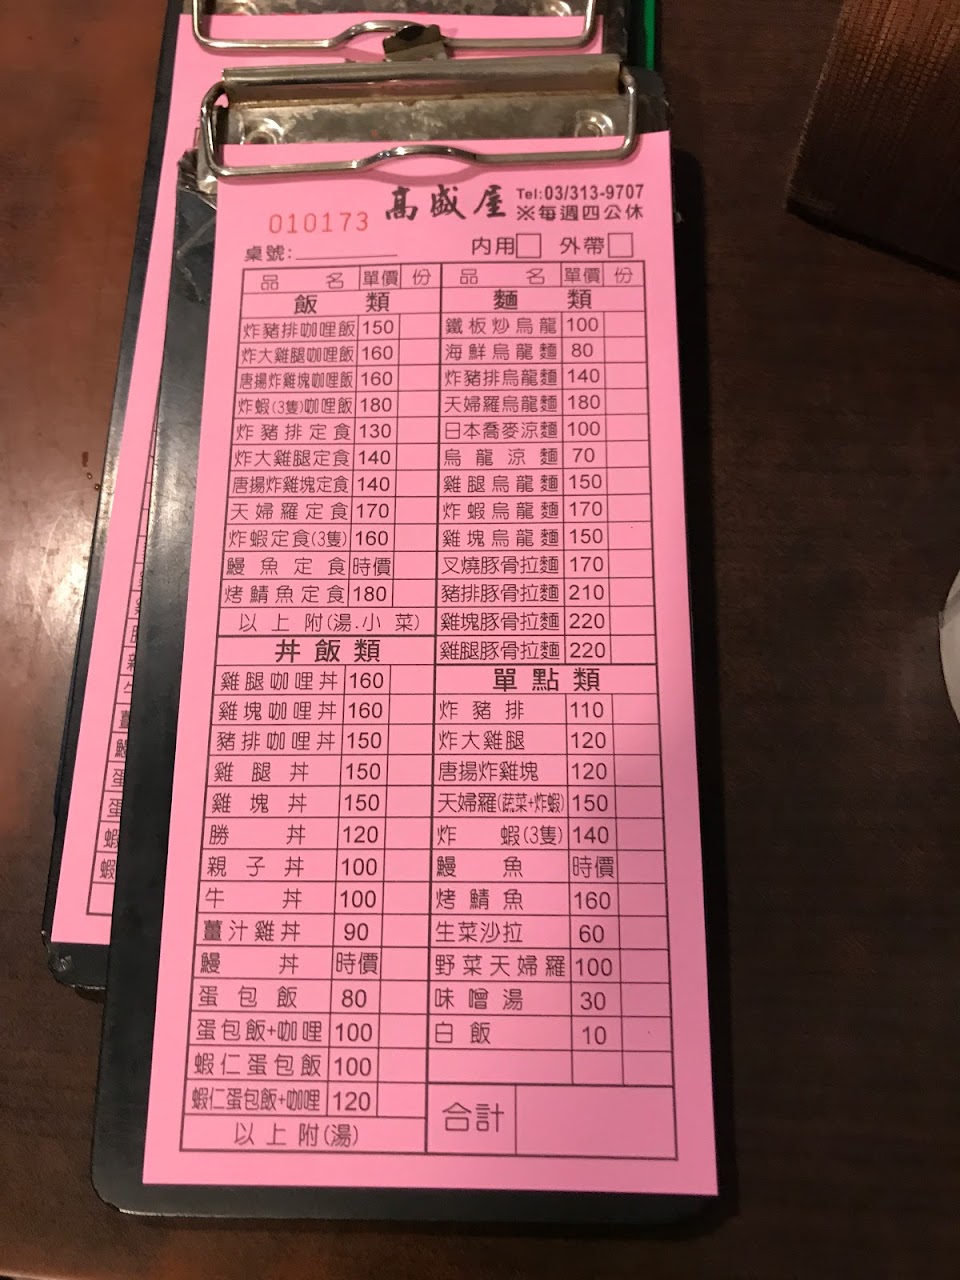 高盛屋 Tel:03/313-9707
010173 ※每週四公休
桌號: 内用 外帶
品名 單價 份
飯類
炸豬排咖哩飯 150
炸大雞腿咖哩飯 160
唐揚炸雞塊咖哩飯 160
炸蝦(3隻)咖哩飯 180
炸豬排定食 130
炸大雞腿定食 140
唐揚炸雞塊定食 140
天婦羅定食 170
炸蝦定食(3隻) 160
鰻魚定食 時價
烤鯖魚定食 180
以上附(湯.小菜)
丼飯類
雞腿咖哩丼 160
雞塊咖哩丼 160
豬排咖哩丼 150
雞腿丼 150
雞塊丼 150
勝丼 120
親子丼 100
牛丼 100
薑汁雞丼 90
鰻丼 時價
蛋包飯 80
蛋包飯+咖哩 100
蝦仁蛋包飯 100
蝦仁蛋包飯+咖哩 120
以上附(湯)
品名 單價 份
麵類
鐵板炒烏龍 100
海鮮烏龍麵 80
炸豬排烏龍麵 140
天婦羅烏龍麵 180
日本喬麥涼麵 100
烏龍涼麵 70
雞腿烏龍麵 150
炸蝦烏龍麵 170
雞塊烏龍麵 150
叉燒豚骨拉麵 170
豬排豚骨拉麵 210
雞塊豚骨拉麵 220
雞腿豚骨拉麵 220
單點類
炸豬排 110
炸大雞腿 120
唐揚炸雞塊 120
天婦羅(蔬菜+炸蝦) 150
炸蝦(3隻) 140
鰻魚 時價
烤鯖魚 160
生菜沙拉 60
野菜天婦羅 100
味噌湯 30
白飯 10
合計